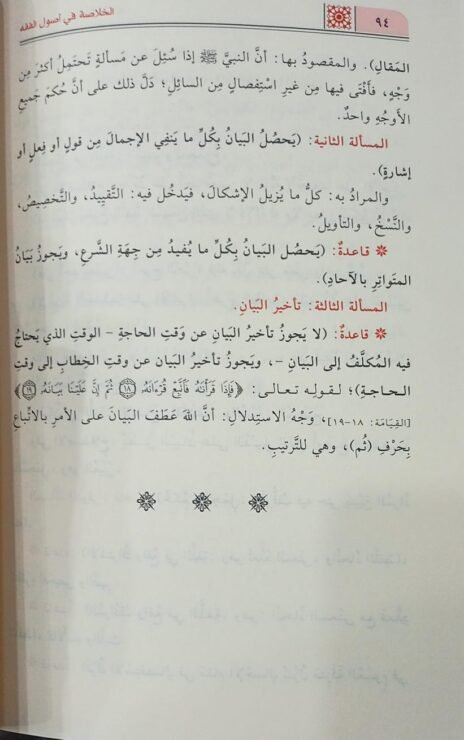 ٩٤
الخلاصة في أصول الفقه
المَقالِ). والمقصودُ بها: أنَّ النبيَّ ﷺ إذا سُئِلَ عن مَسألةٍ تَحتَمِلُ أكثرَ مِن
وَجْهٍ، فأَفْتَى فيها مِن غيرِ استِفصالٍ مِن السائلِ؛ دَلَّ ذلك على أنَّ حُكمَ جَميعِ
الأَوجُهِ واحدٌ.
المسألة الثانية: (يَحصُلُ البَيانُ بِكُلِّ ما يَنفِي الإجمالَ مِن قولٍ أو فِعلٍ أو
إشارةٍ).
والمرادُ به: كلُّ ما يُزيلُ الإشكالَ، فيَدخُل فيه: التَّقييدُ، والتَّخصِيصُ،
والنَّسْخُ، والتأويلُ.
* قاعدةٌ: (يَحصُل البَيانُ بِكُلِّ ما يُفيدُ مِن جِهَةِ الشَّرعِ، ويَجوزُ بَيَانُ
المتَواتِرِ بالآحادِ).
المسألة الثالثة: تأخيرُ البَيانِ.
* قاعدةٌ: (لا يَجوزُ تأخيرُ البَيانِ عن وَقتِ الحاجةِ – الوقتِ الذي يَحتاجُ
فيه المُكلَّفُ إلى البَيانِ –، ويَجوزُ تأخيرُ البَيان عن وقتِ الخِطابِ إلى وَقتِ
الحاجةِ)؛ لقولِه تعالى: ﴿فَإِذَا قَرَأْنَاهُ فَاتَّبِعْ قُرْءَانَهُ ۝١٨ ثُمَّ إِنَّ عَلَيْنَا بَيَانَهُ ۝١٩﴾
[القِيَامَة: ١٨-١٩]، وَجْهُ الاستِدلالِ: أنَّ اللهَ عَطَفَ البَيَانَ على الأمرِ بالاتِّباعِ
بِحَرْفِ (ثُم)، وهي للتَّرتيبِ.